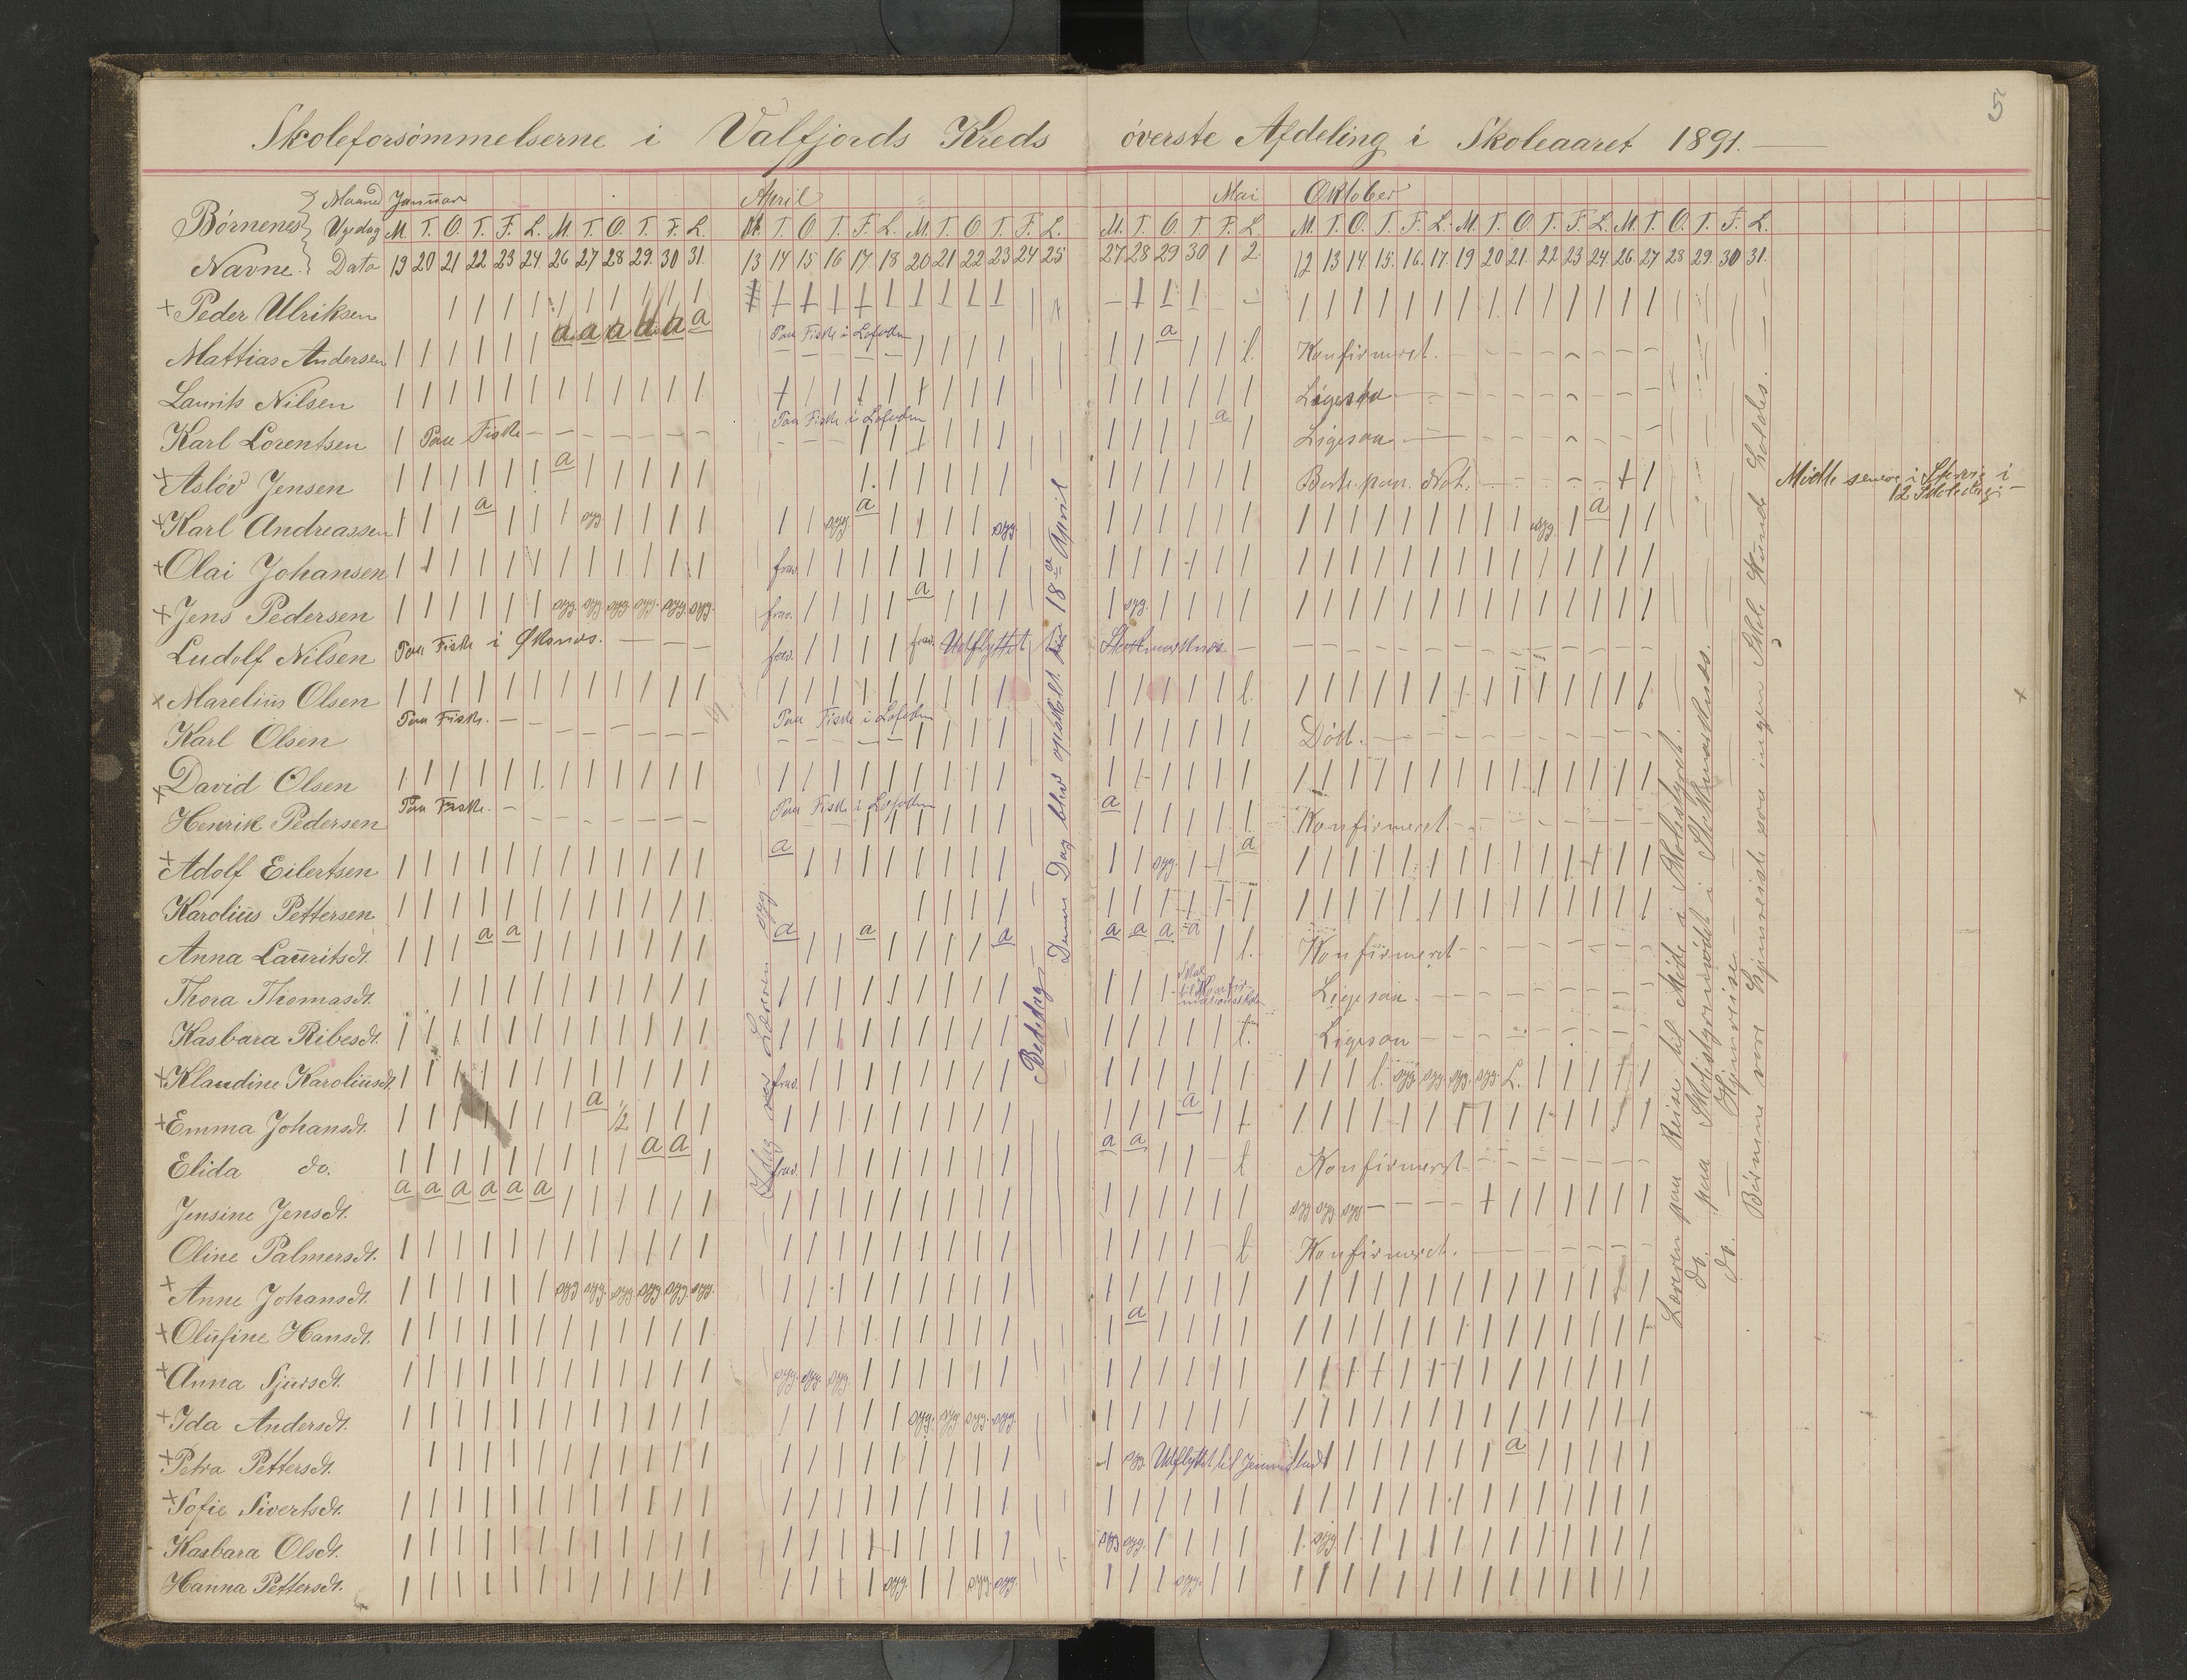 5
Skoleforsömmelserne i Valfjords Kreds överste Afdeling i Skoleaaret 1891.
Maaned Januar April Mai Oktober
Børnenes Ugedag M. T. O. T. F. L. M. T. O. T. F. L. M. T. O. T. F. L. M. T. O. T. F. L. M. T. O. T. F. L. M. T. O. T. F. L. M. T. O. T. F. L. M. T. O. T. F. L.
Navne. Dato 19 20 21 22 23 24 26 27 28 29 30 31. 13 14 15 16 17 18 20 21 22 23 24 25 27 28 29 30 1 2. 12 13 14 15 16 17 19 20 21 22 23 24 26 27 28 29 30 31.
+ Peder Ulriksen
Mattias Andersen a a a a a a Paa Fiske i Lofoden a l. Konfirmeret.
Laurits Nilsen Ligesaa
Karl Lorentsen Paa Fiske Paa Fiske i Lofoden a Ligesaa
+ Asløv Jensen a
+ Karl Andreassen a syg. syg. a syg. syg. a
+ Olai Johansen frav.
+ Jens Pedersen syg. syg. syg. syg. syg. syg. frav. a syg.
Ludolf Nilsen Paa Fiske i frav. frav. Udflyttet til
x Marelius Olsen l.
Karl Olsen Paa Fiske. Paa Fiske i Lofoden Död.
+ David Olsen
Henrik Pedersen Paa Fiske. Paa Fiske i Lofoden a Konfirmeret
+ Adolf Eilertsen a syg. a
Karolius Pettersen
Anna Lauritsdt. a a a a a a a a a l. Konfirmeret
Thora Thomasdt. Ligesaa.
Kasbara Ribesdt. Ligesaa
+ Klaudine Karoliusdt. frav. l. syg. syg. syg. syg. L.
+ Emma Johansdt. a 1/2 a
Elida do. a a frav. a a Konfirmeret
Jensine Jensdt. a a a a a a syg syg syg
Oline Palmersdt. Konfirmeret.
+ Anne Johansdt. syg syg. syg syg syg. syg.
+ Olufine Hansdt. a
+ Anna Sjursdt. syg. syg. syg
+ Ida Andersdt. syg. syg. syg. syg.
+ Petra Pettersdt. syg. Udflyttet til a
+ Sofie Sivertsdt.
Kasbara Olsdt. syg syg. syg
Hanna Pettersdt. syg. syg. syg. syg.
Idag Læreren syg
Bededag
Denne Dag blev opskilt 18de April
Læreren paa Reise til Möde i Skolestyret.
do. paa Skolestyremödet i
do. Hjemreise
Börnene vare hjemreiste saa ingen Skole kunde holdes.